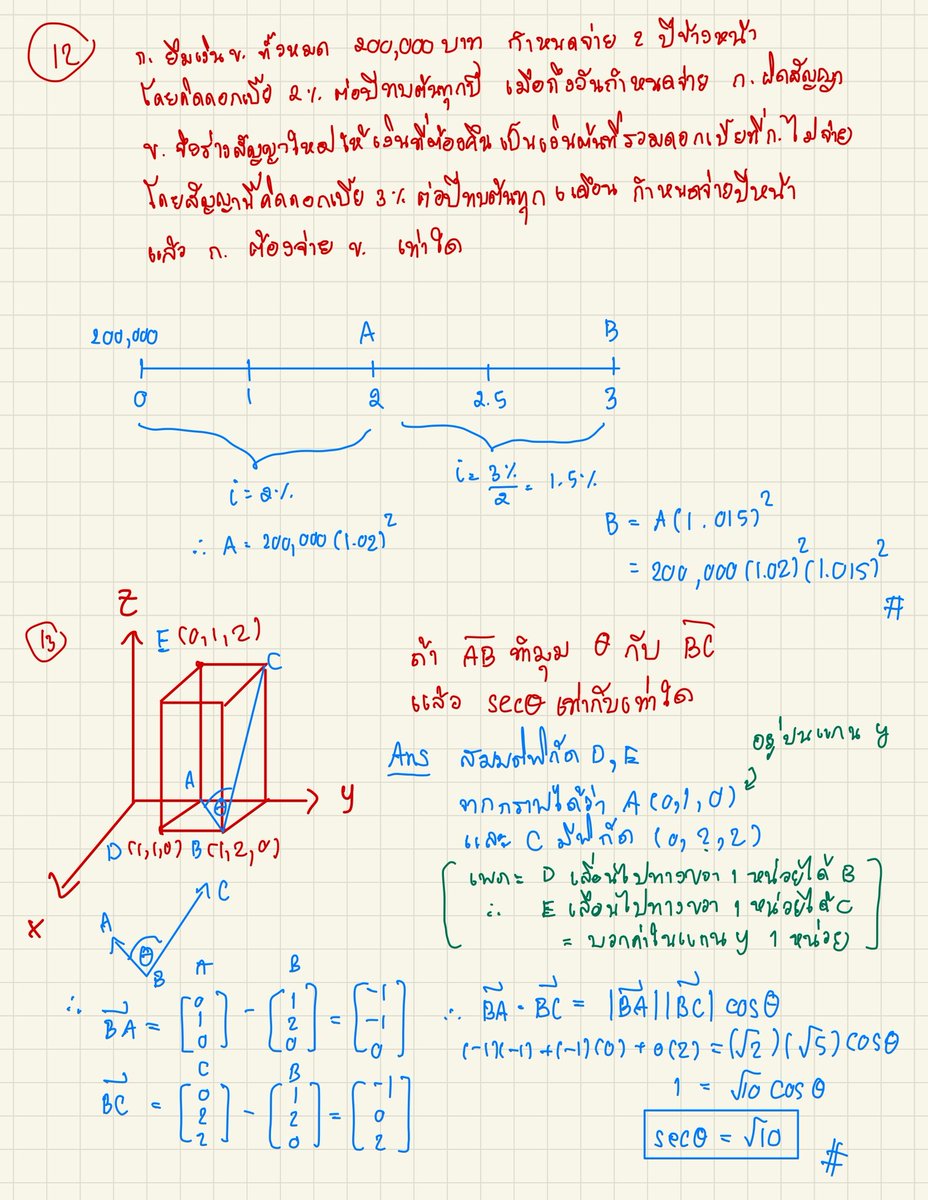 12
ก. ยืมเงิน ข. ทั้งหมด 200,000 บาท กำหนดจ่าย 2 ปีข้างหน้า
โดยคิดดอกเบี้ย 2% ต่อปีทบต้นทุกปี เมื่อถึงวันกำหนดจ่าย ก. ผิดสัญญา
ข. จึงร่างสัญญาใหม่ให้เงินที่ต้องคืนเป็นเงินต้นที่รวมดอกเบี้ยที่ ก. ไม่จ่าย
โดยสัญญานี้คิดดอกเบี้ย 3% ต่อปีทบต้นทุก 6 เดือน กำหนดจ่ายปีหน้า
แล้ว ก. ต้องจ่าย ข. เท่าใด
200,000 A B
0 1 2 2.5 3
i = 2%
i = 3%/2 = 1.5%
∴ A = 200,000 (1.02)²
B = A(1.015)²
= 200,000 (1.02)²(1.015)²
#
13
Z
E (0,1,2)
C
A
θ
y
D (1,1,0) B (1,2,0)
x
ถ้า AB ทำมุม θ กับ BC
แล้ว secθ เท่ากับเท่าใด
Ans สมมติพิกัด D, E
อยู่บนแกน y
จากกราฟได้ว่า A (0,1,0)
และ C มีพิกัด (0,2,2)
เพราะ D เลื่อนไปทางขวา 1 หน่วยได้ B
∴ E เลื่อนไปทางขวา 1 หน่วยได้ C
= บวกค่าในแกน y 1 หน่วย
A
C
θ
B
A B
∴ BA = [0 1 0] - [1 2 0] = [-1 -1 0]
C B
BC = [0 2 2] - [1 2 0] = [-1 0 2]
∴ BA · BC = |BA||BC| cosθ
(-1)(-1) + (-1)(0) + 0(2) = (√2)(√5) cosθ
1 = √10 cosθ
secθ = √10
#